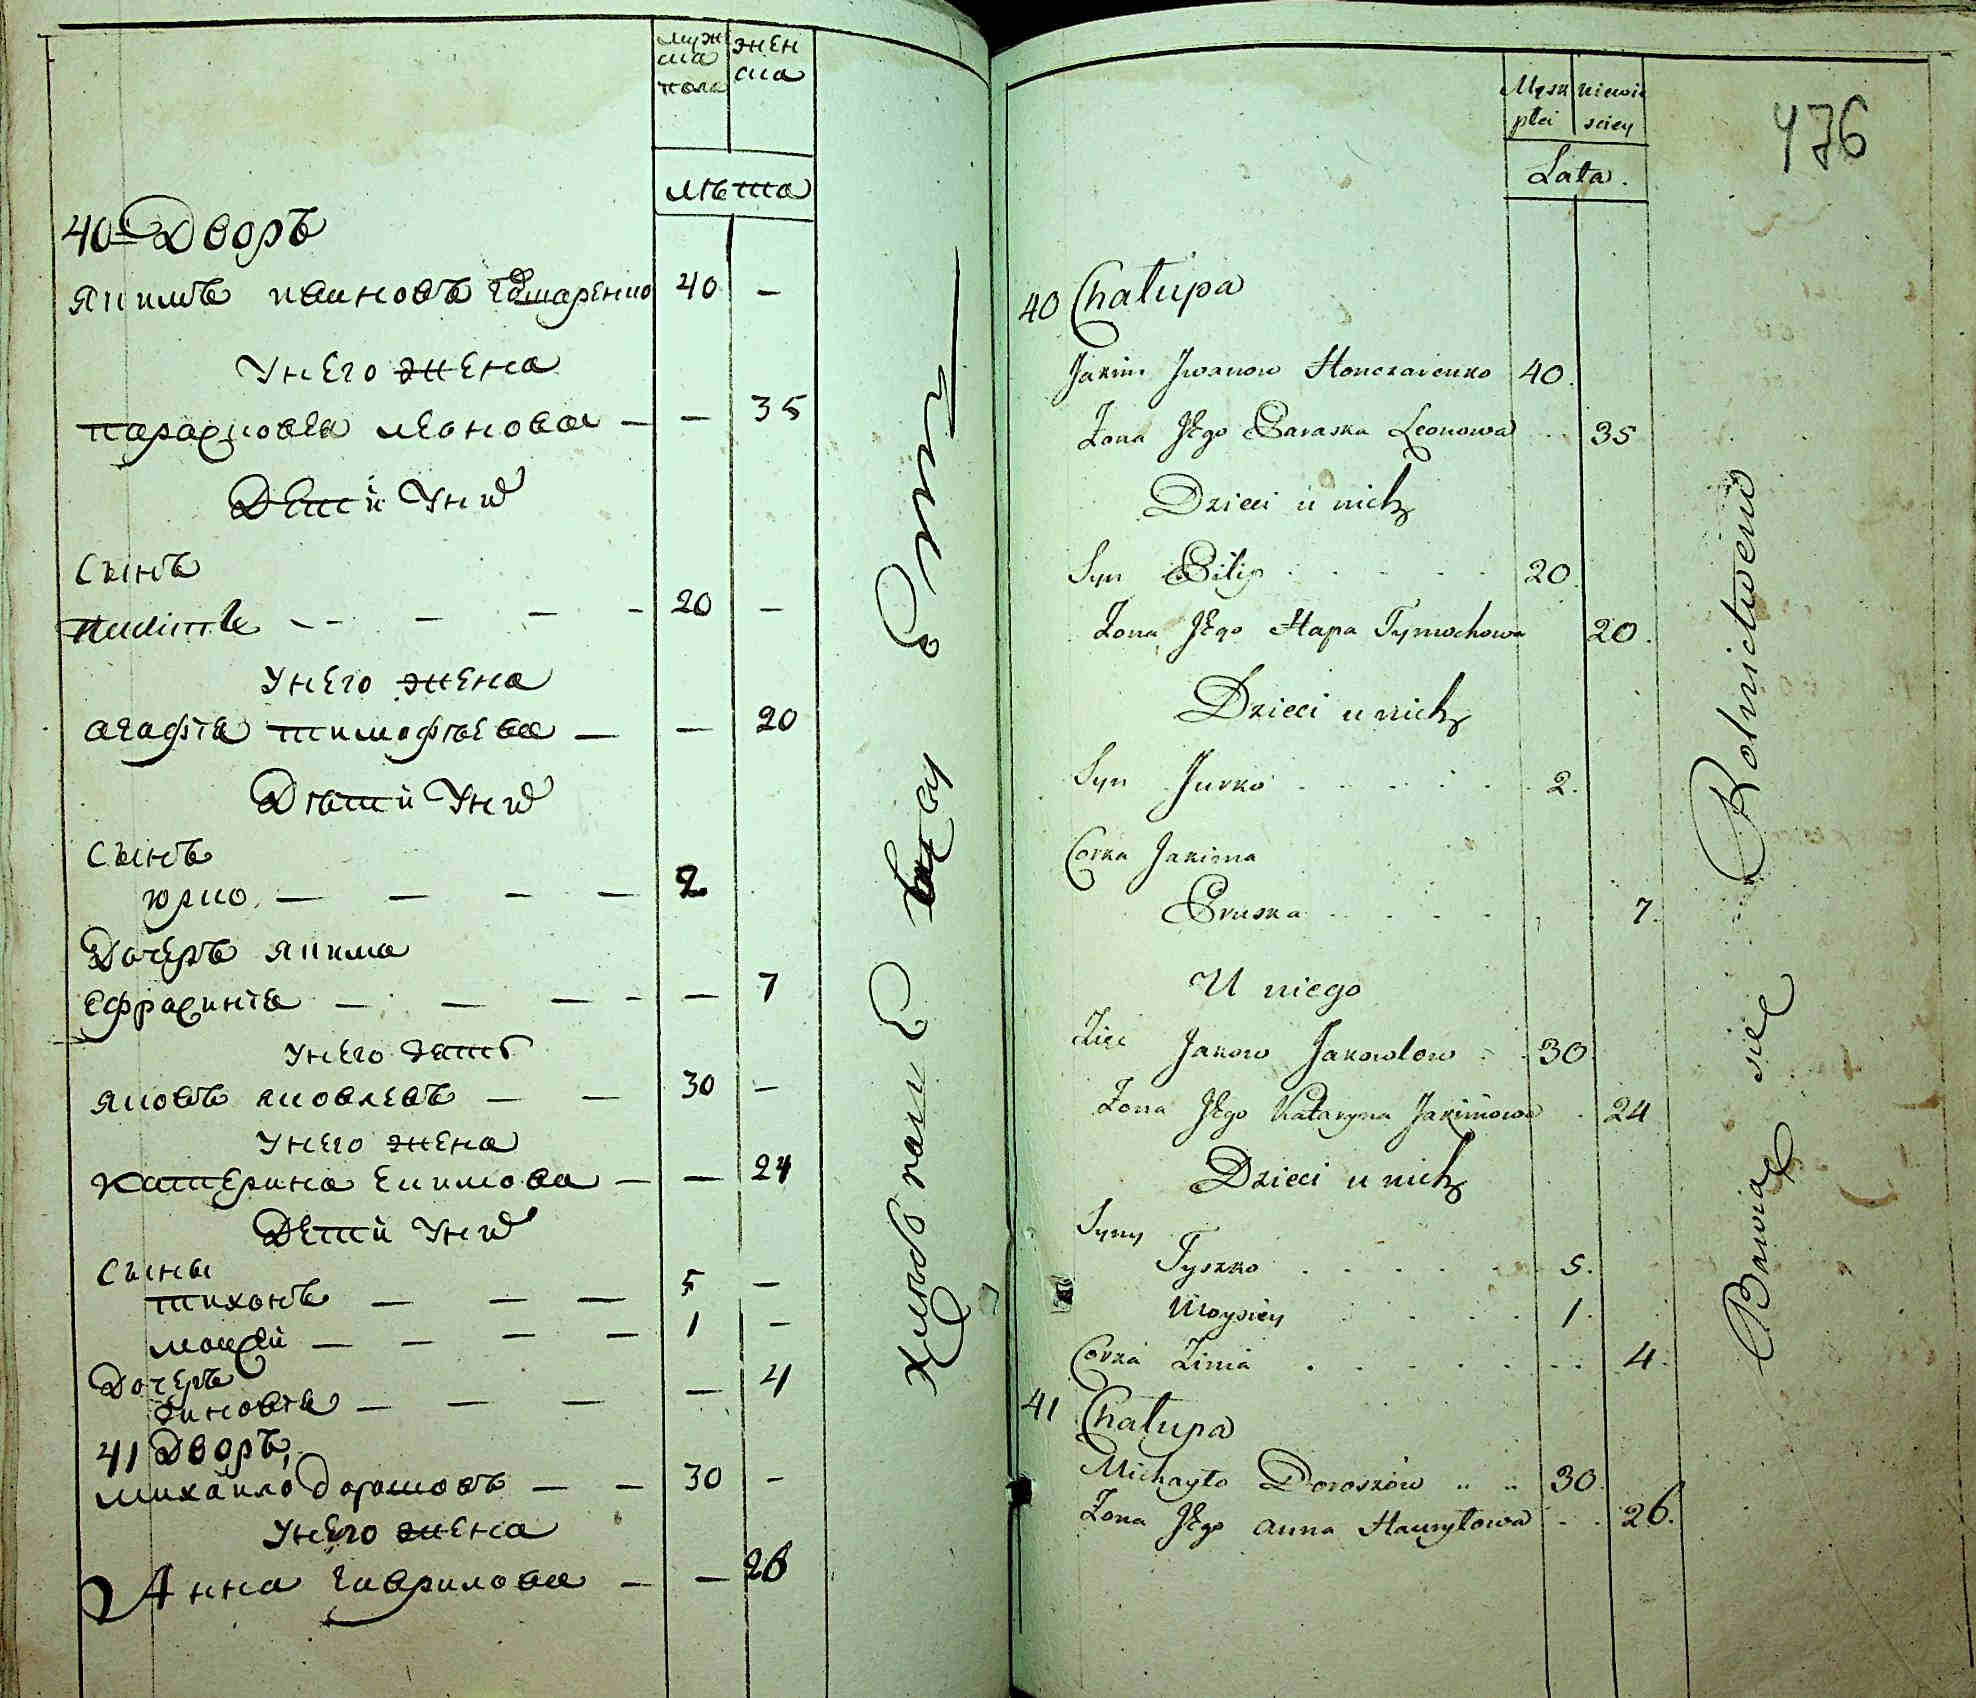 мужска пола
женска
лѣта
40 Дворъ
якимъ ивановъ 40 —
У него жена
парасковея леонова — — 35
Дети У них
Сынъ
Филипъ — — — 20 —
У него жена
агафiя тимофѣева — — 20
Дѣти У них
Сынъ
юрко — — — — 2
Дочеръ якима
ефрасинiя — — — — 7
У него зять
яковъ яковлевъ — — 30 —
У него жена
катерина екимова — — 24
Дети У них
Сыны
тихонъ — — — 5 —
мойсей — — — — 1 —
Дочеръ
зиновiя — — — — 4
41 Дворъ
михайло дорошовъ — — 30 —
У него жена
Анна гаврилова — — 26
Męsk płci
niewieściey
Lata.
476
40 Chałupa
Jakim Jwanow Honczarenko 40.
Zona Jego Paraska Leonowa . . 35
Dzieci u nich
Syn Pilip . . . . . 20.
Zona Jego Hapa Tymochowa 20.
Dzieci u nich
Syn Jurko . . . . . 2.
Corka Jakima
Pruska . . . . 7.
U niego
Zięć Jakow Jakowlow . . 30
Zona Jego Kataryna Jakimowa . 24
Dzieci u nich
Syny
Tyszko . . . . . 5.
Moysiey . . . . 1.
Corka Zinia . . . . . . . 4.
41 Chałupa
Michayło Doroszow " " 30.
Zona Jego Anna Hauryłowa . . 26.
Bawią się Rolnictwem